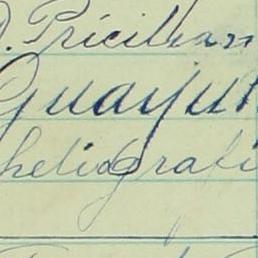 D. Pricilian
Guayu
heliografi